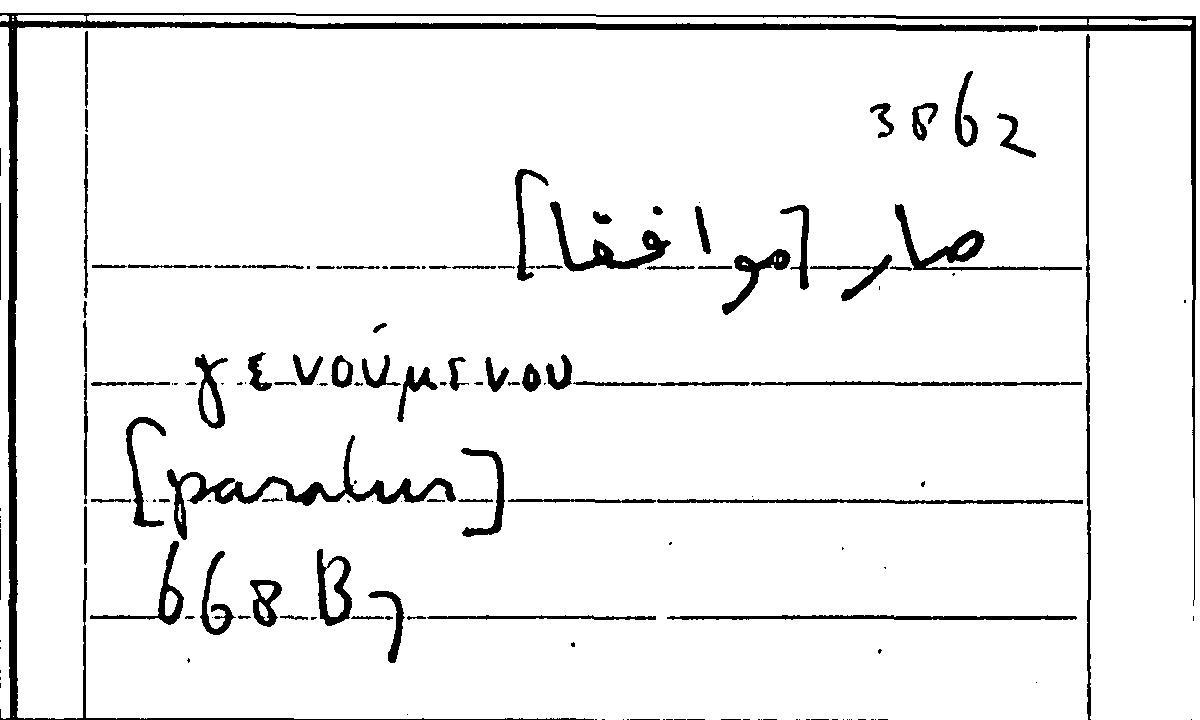 3862
صار [موافقا]
γενούμενου
[paratum]
668 B 7